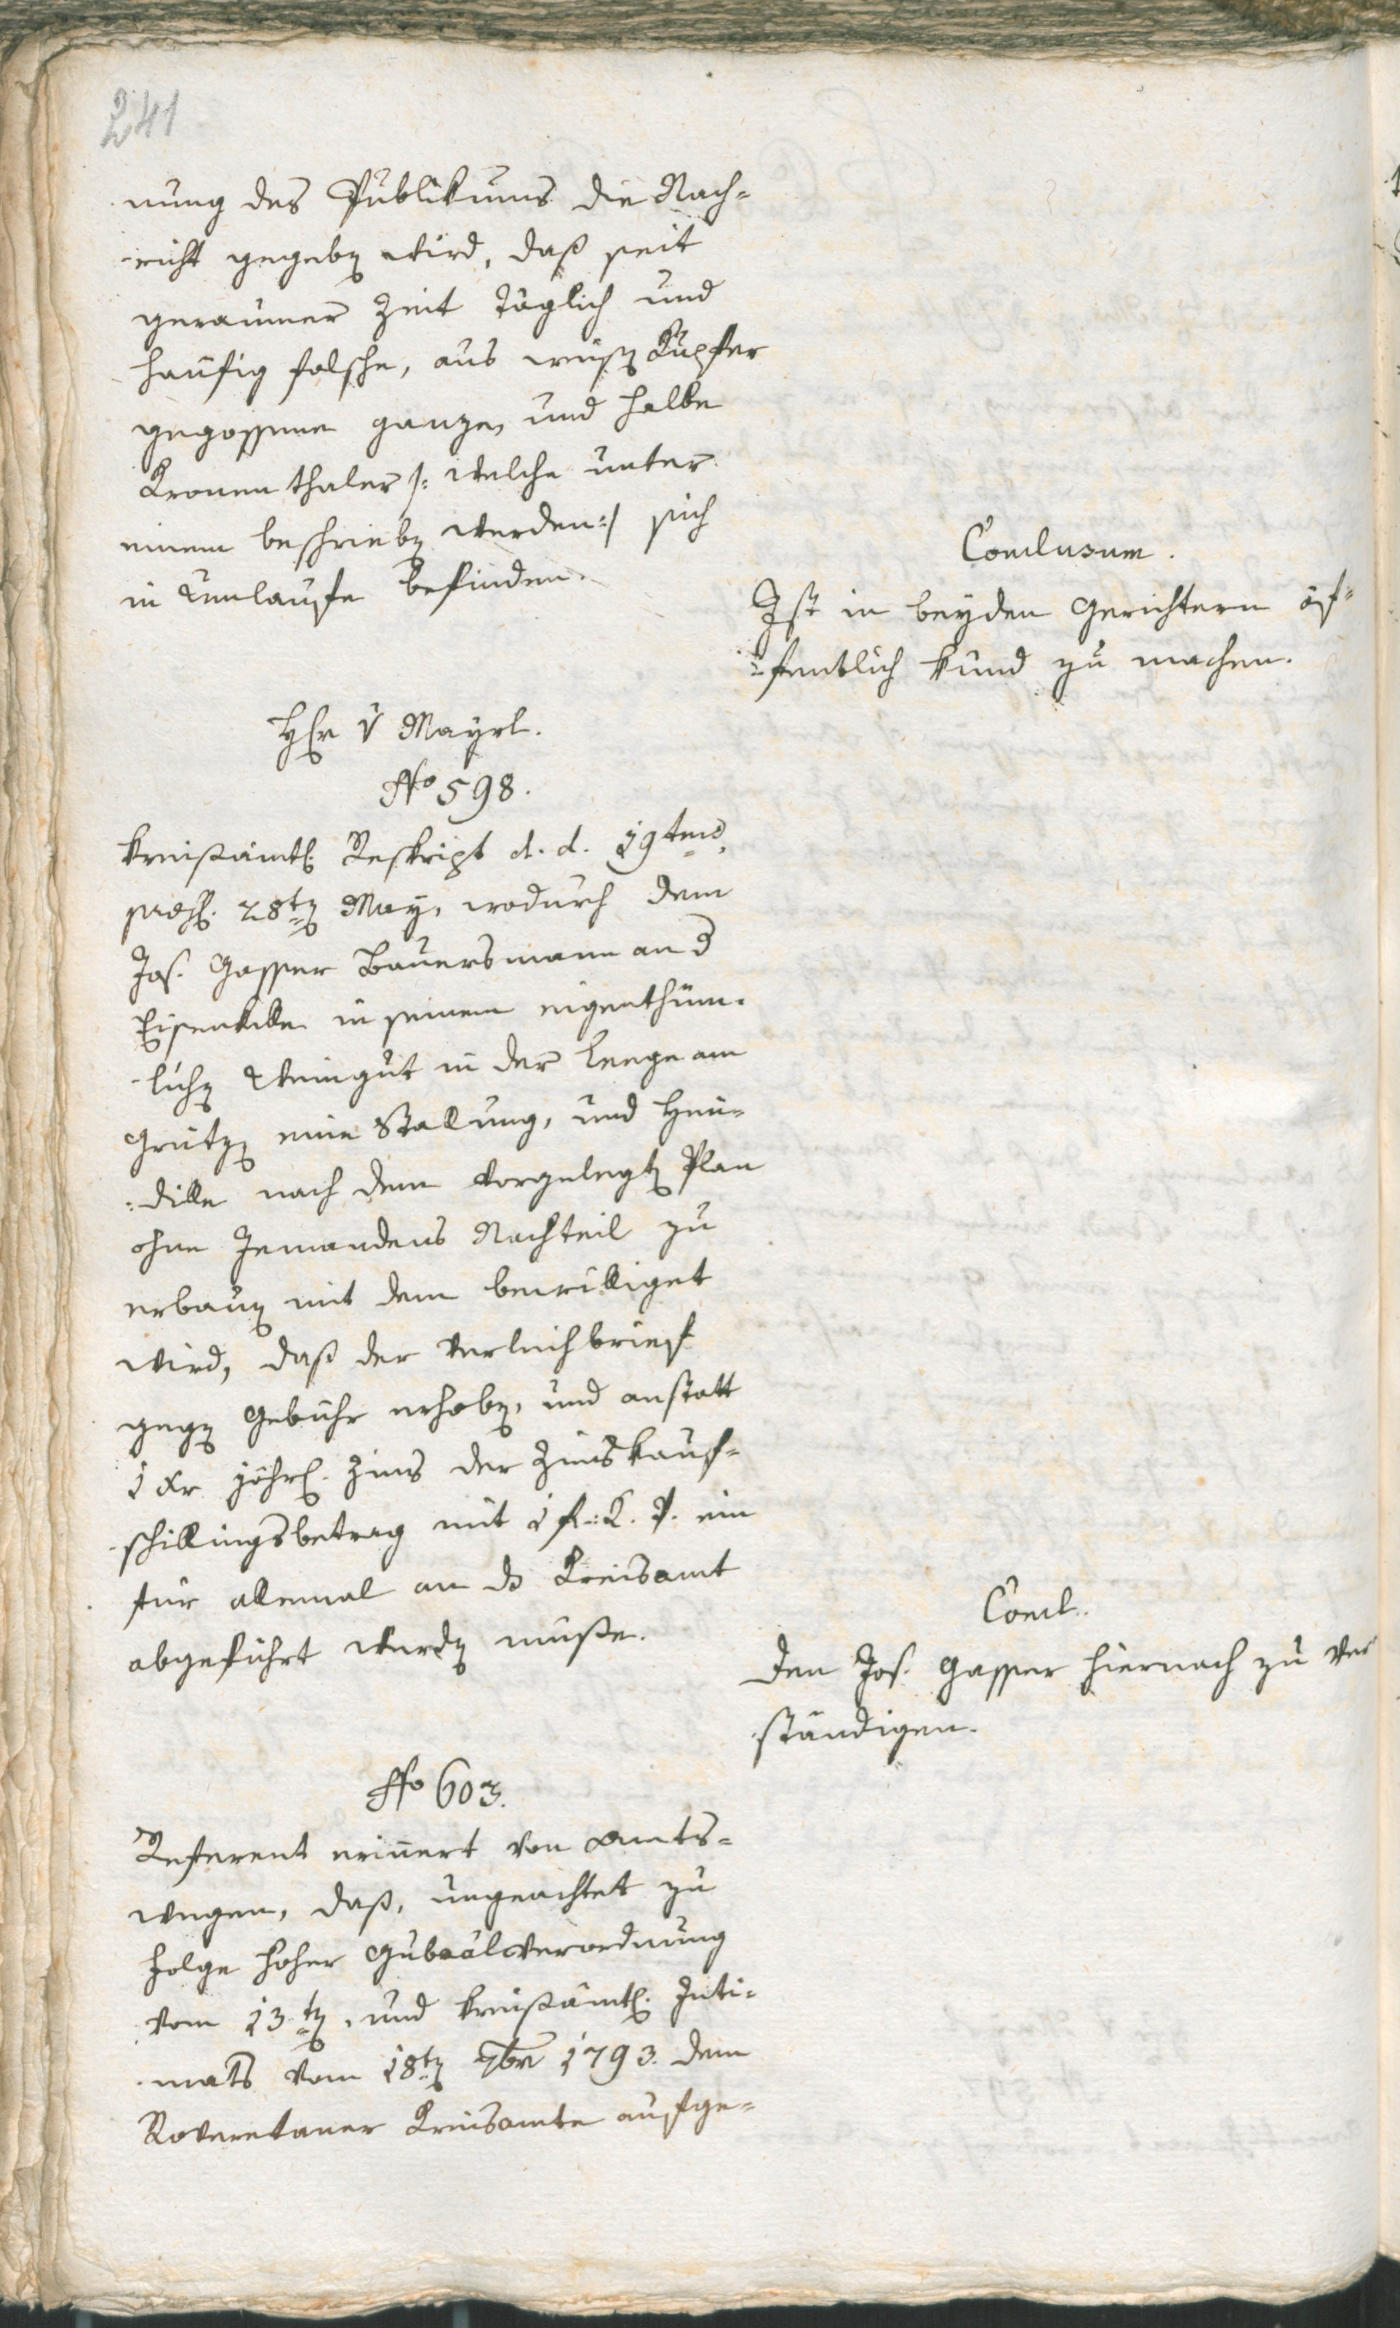 241
nung des Publikums die Nach=
=richt gegeben wird, daß seit
geraumer Zeit täglich und
häufig falsche, aus weißen Kupfer
gegossene ganze, und halbe
Kronenthaler /: welche unter
einem beschrieben werden :/ sich
in Umlaufe befinden.
Conclusum.
Ist in beyden Gerichtern öf=
=fentlich kund zu machen.
Hr v Mayrl.
No 598.
Kreißämtl. Reskript d. d. 19ten
28ten May, wodurch dem
Jos. Gasser Bauersmann an d
Eisenkelle in seinem eigenthüm=
=lichen Weingut in der Leege am
Grützen eine Stallung, und Heu=
=dille nach dem vorgelegten Plan
ohne Jemandens Nachteil zu
erbauen mit dem bewilliget
wird, daß der Verleihbrief
gegen Gebühr erhoben, und anstatt
1 Xr jährl. Zins der Zinskauf=
=schillingsbetrag mit 1 f: K. P. ein
für allemal an ds Kreisamt
abgeführt werden müße.
Concl.
Den Jos. Gasser hiernach zu ver
ständigen.
No 603.
Referent erinnert von Amts=
wegen, daß, ungeachtet zu
Folge hoher Gubaalverordnung
vom 13ten, und kreißämtl. Inti=
mats vom 18ten 7br 1793. dem
Roveretaner Kreisamte aufge=